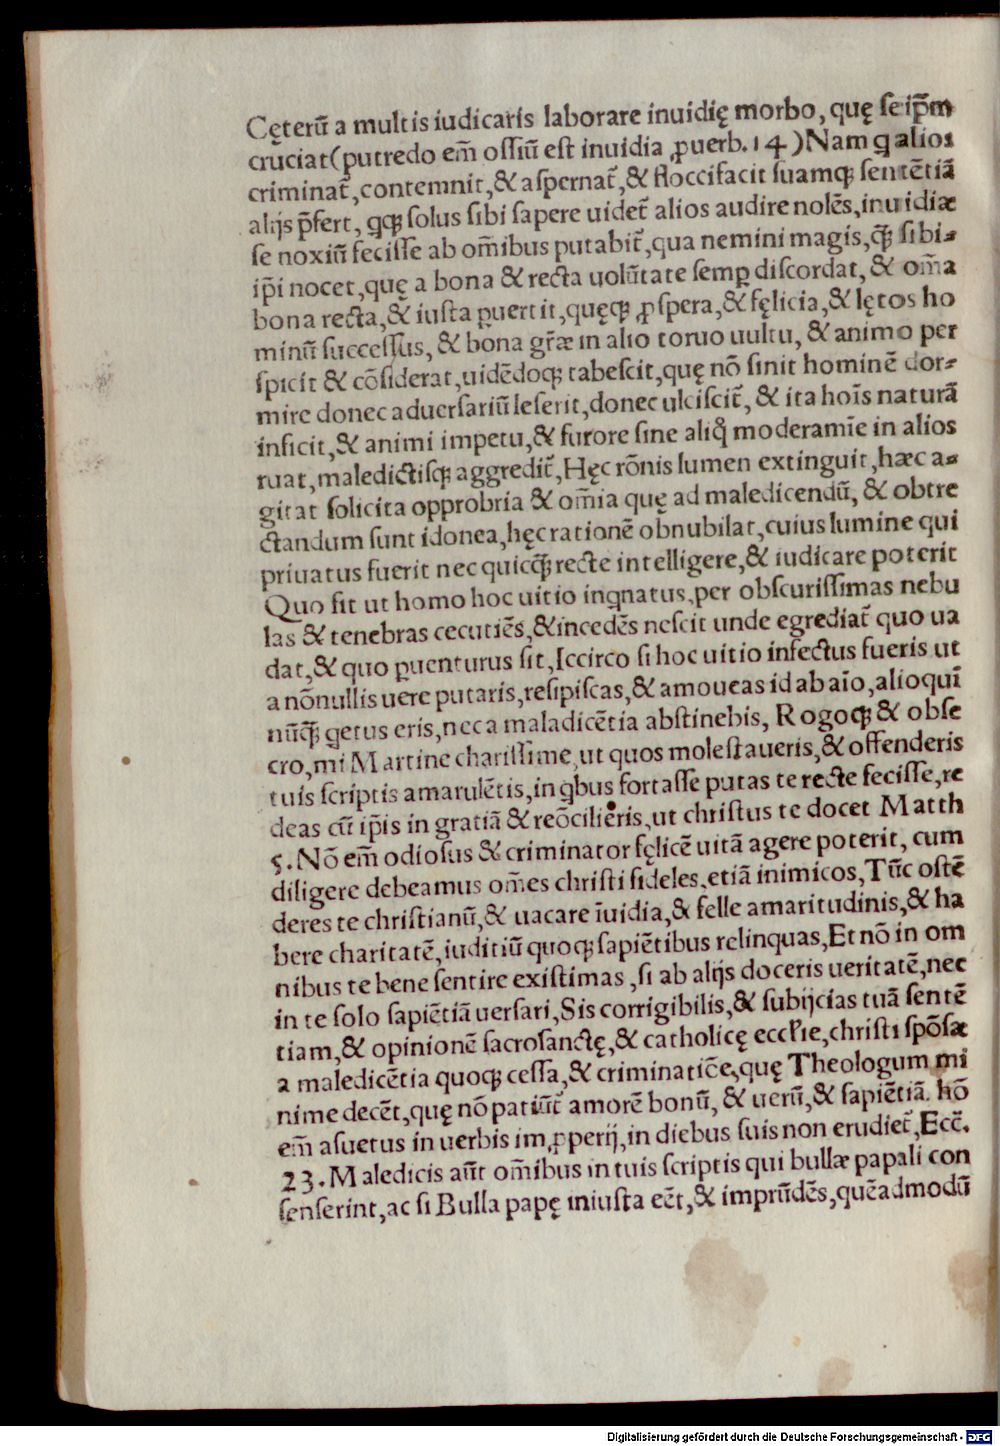 Cęterū a multis iudicaris laborare inuidię morbo, quę seip̄m
cruciat(putredo em̄ ossiū est inuidia ꝓuerb.14)Nam q alios
criminat̄,contemnit,& aspernat̄,& floccifacit suamqꝫ sentētiā
alijs p̄fert, qqꝫ solus sibi sapere uidet̄ alios audire nolēs,inuidiæ
se noxiū fecisse ab om̄ibus putabit̄,qua nemini magis,qꝫ̄ sibi⸗
ip̄i nocet,quę a bona & recta uolūtate semꝑ discordat, & om̄a
bona recta,& iusta ꝑuertit,quęqꝫ ꝓspera,& fęlicia,& lętos ho
minū successus, & bona gr̄æ in alio toruo uultu, & animo per
spicit & cōsiderat,uidēdoqꝫ tabescit,quę nō sinit hominē dor⸗
mire donec aduersariū leserit,donec ulciscit̄, & ita hoīs naturā
inficit,& animi impetu,& furore sine aliq̊ moderamīe in alios
ruat,maledictisqꝫ aggredit̄,Hęc rōnis lumen extinguit,hæc a⸗
gitat solicita opprobria & om̄ia quę ad maledicendū, & obtre
ctandum sunt idonea,hęc rationē obnubilat,cuius lumine qui
priuatus fuerit nec quicqꝫ̄ recte intelligere,& iudicare poterit
Quo fit ut homo hoc uitio inqnatus,per obscurissimas nebu
las & tenebras cecutiēs,&incedēs nescit unde egrediat̄ quo ua
dat,& quo ꝑuenturus sit,Iccirco si hoc uitio infectus fueris ut
a nōnullis uere putaris,resipiscas,& amoueas id ab aīo,alioqui
nūqꝫ̄ qetus eris,nec a maladicētia abstinebis, Rogoqꝫ & obse
cro,mi Martine charissime,ut quos molestaueris,& offenderis
tuis scriptis amarulētis,in qbus fortasse putas te recte fecisse,re
deas cū ip̄is in gratiā & reōcilieris,ut christus te docet Matth
5.Nō em̄ odiosus & criminator fęlicē uitā agere poterit, cum
diligere debeamus om̄es christi fideles,etiā inimicos,Tūc ostē
deres te christianū,& uacare īuidia,& felle amaritudinis,& ha
bere charitatē,iuditiū quoqꝫ sapiētibus relinquas,Et nō in om
nibus te bene sentire existimas ,si ab alijs doceris ueritatē,nec
in te solo sapiētiā uersari,Sis corrigibilis,& subijcias tuā sentē
tiam,& opinionē sacrosanctę,& catholicę eccl̄ie,christi spōsæ
a maledicētia quoqꝫ cessa,& criminatiōe,quę Theologum mi
nime decēt,quę nō patiūt̄ amorē bonū, & uerū,& sapiētiā. hō
em̄ asuetus in uerbis imꝓperij,in diebus suis non erudiet̄,Ecc̄.
23.Maledicis aūt om̄ibus in tuis scriptis qui bullæ papali con
senserint,ac si Bulla papę iniusta eēt,& imprūdēs,quēadmodū
Digitalisierung gefördert durch die Deutsche Forschungsgemeinschaft - DFG